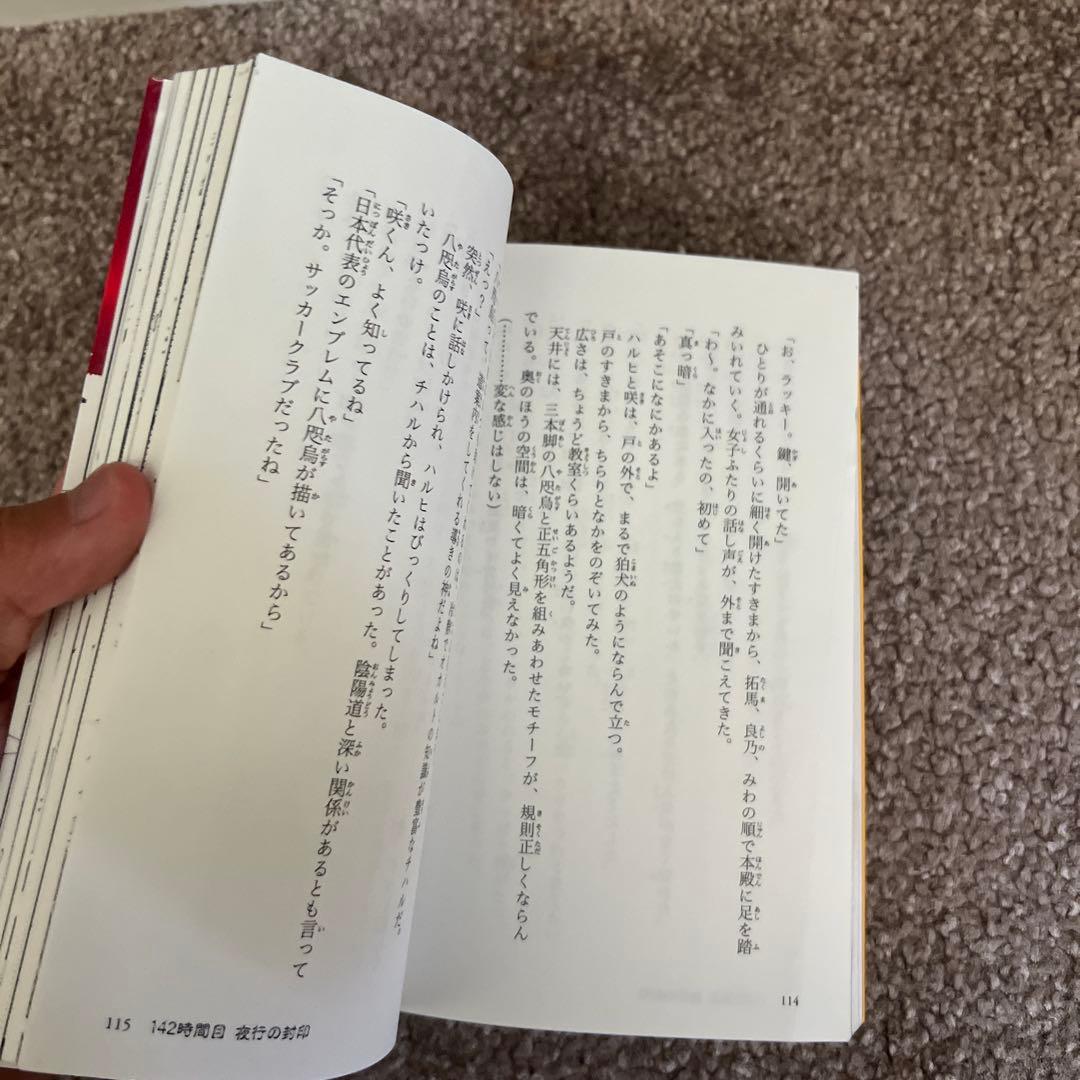 「お、ラッキー。鍵、開いてた」
ひとりが通れるくらいに細く開けたすきまから、拓馬、良乃、みわの順で本殿に足を踏
みいれていく。女子ふたりの話し声が、外まで聞こえてきた。
「わ〜。なかに入ったの、初めて」
「真っ暗」
「あそこになにかあるよ」
ハルヒと咲は、戸の外で、まるで狛犬のようにならんで立つ。
戸のすきまから、ちらりとなかをのぞいてみた。
広さは、ちょうど教室くらいあるようだ。
天井には、三本脚の八咫烏と正五角形を組みあわせたモチーフが、規則正しくならん
でいる。奥のほうの空間は、暗くてよく見えなかった。
(…………変な感じはしない)
114
って、道案内をしてくれる導きの神だよね」
「えっ?」
突然、咲に話しかけられ、ハルヒはびっくりしてしまった。
八咫烏のことは、チハルから聞いたことがあった。陰陽道と深い関係があるとも言って
いたっけ。
「咲くん、よく知ってるね」
「日本代表のエンブレムに八咫烏が描いてあるから」
「そっか。サッカークラブだったね」
115 142時間目 夜行の封印